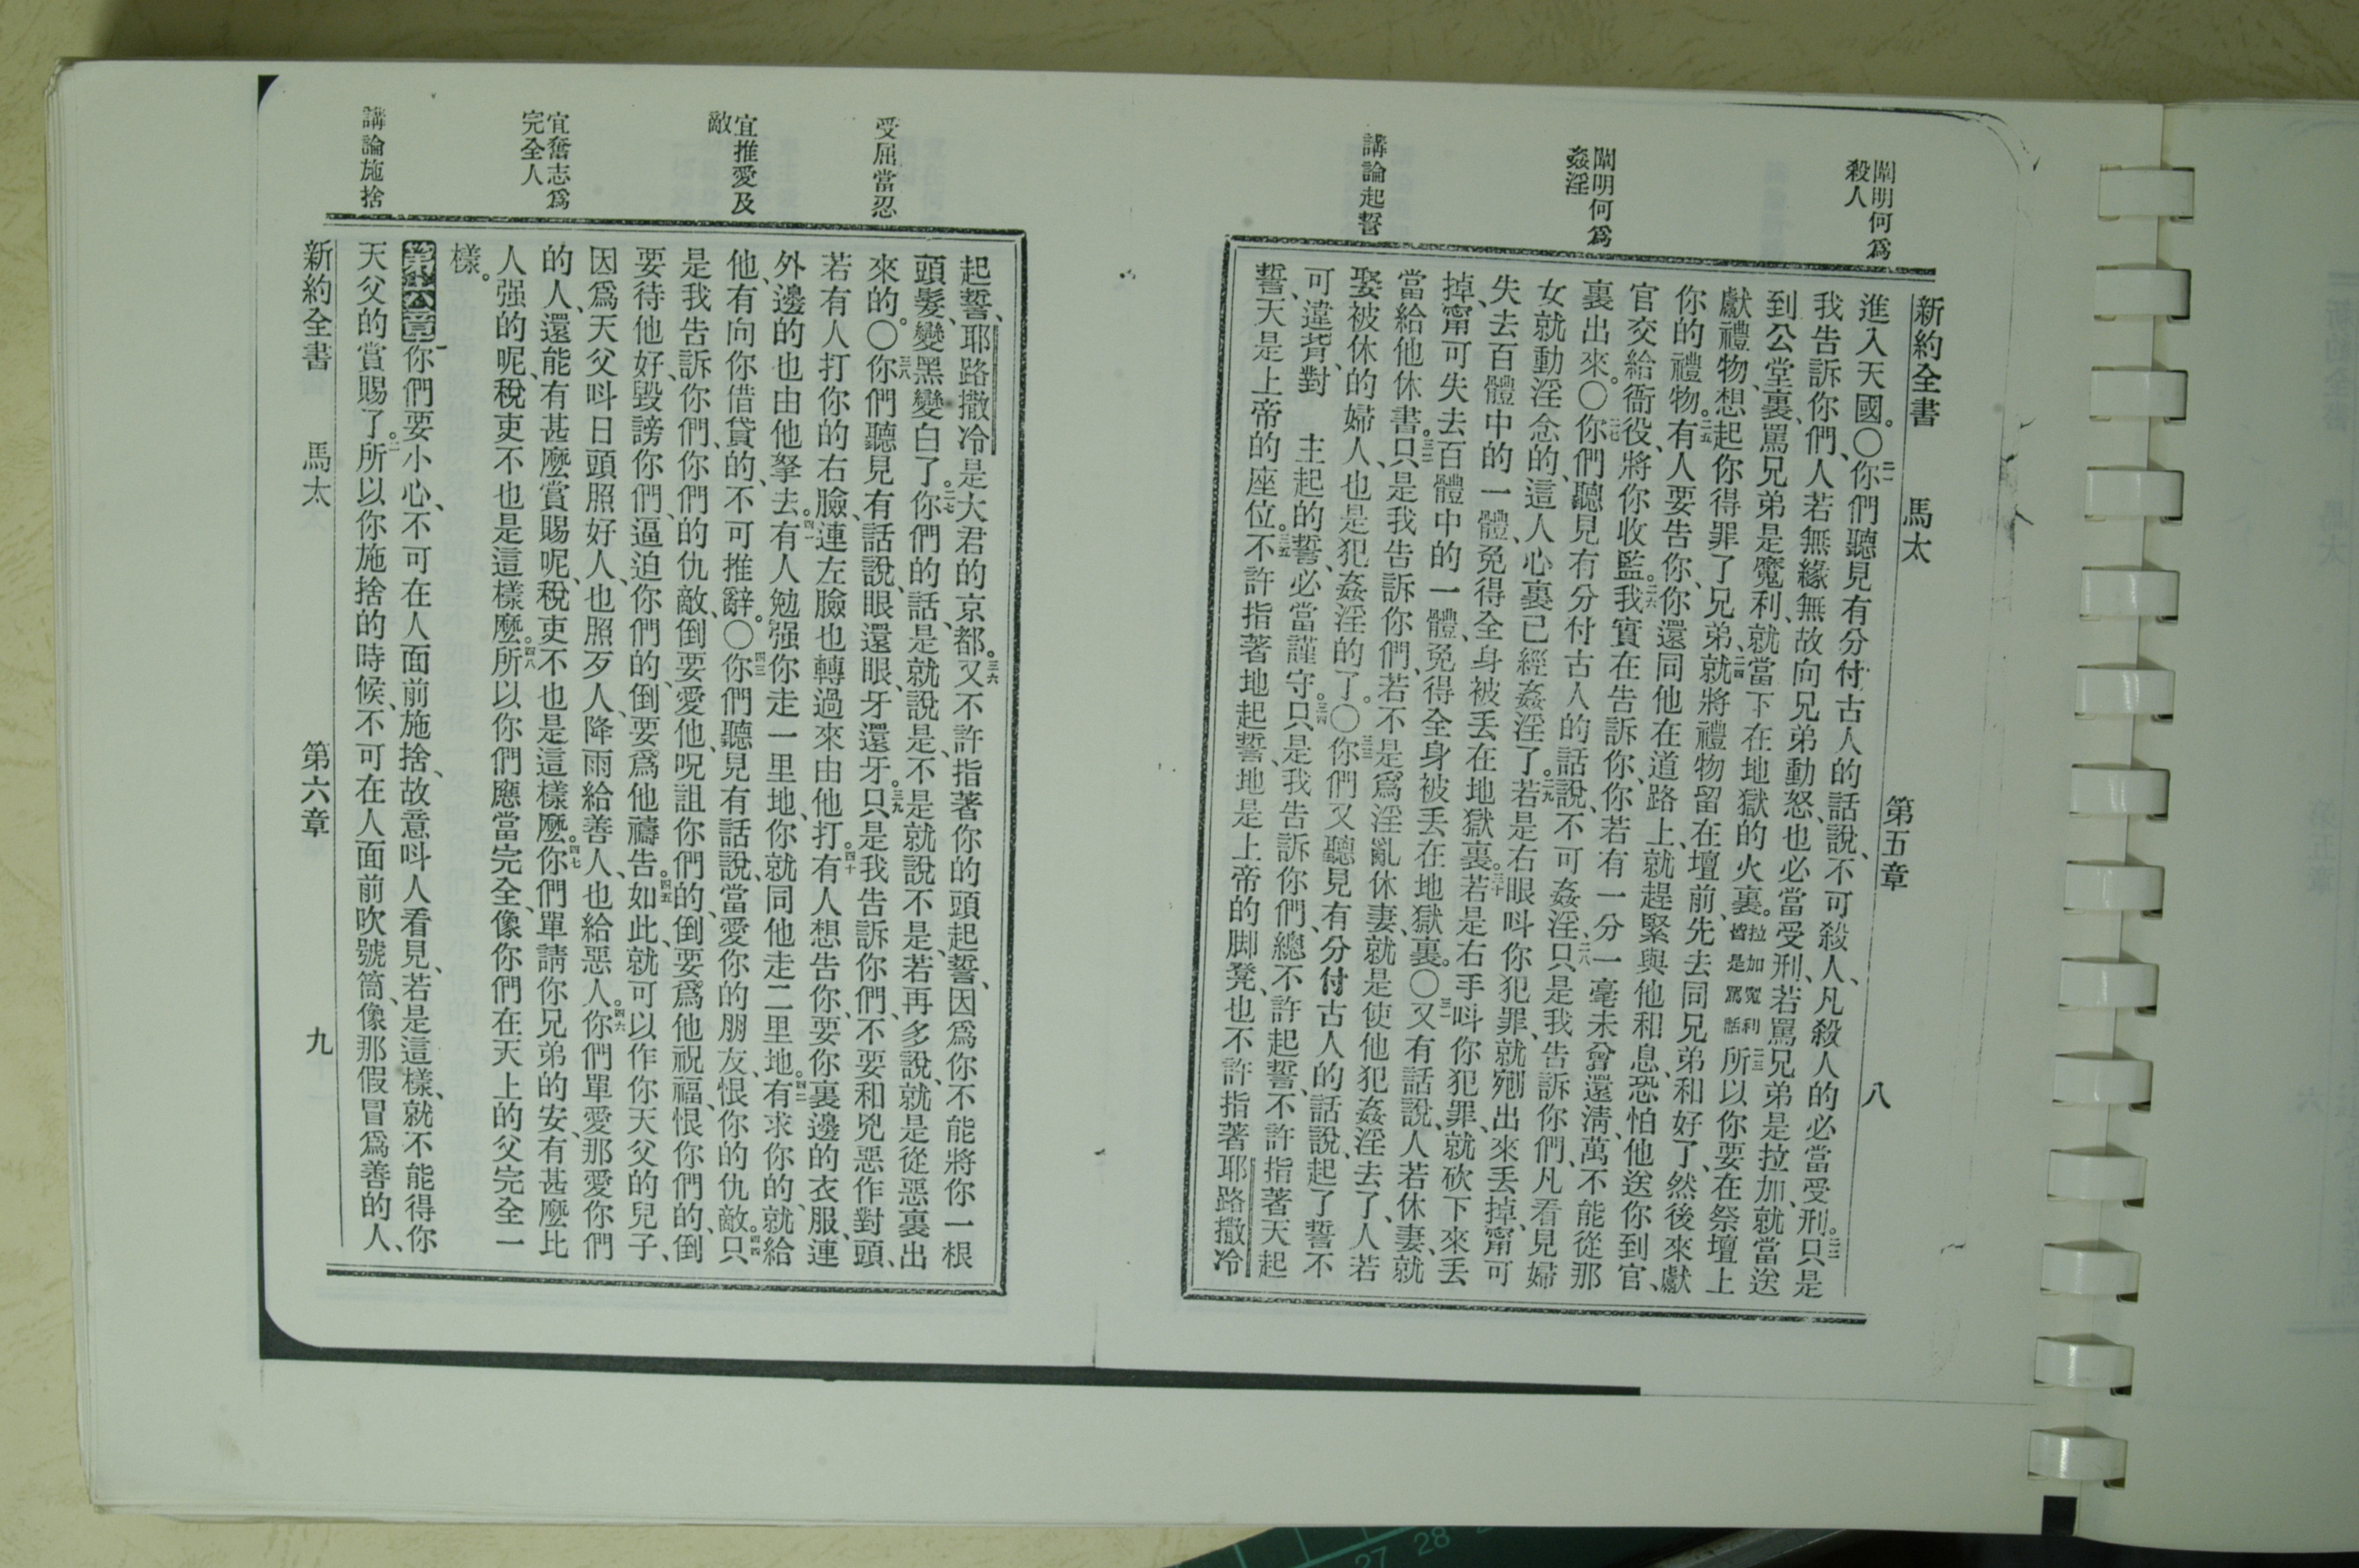 闡明何爲
殺人
闡明何爲
姦淫
講論起誓
新約全書 馬太 第五章 八
進入天國。〇二一你們聽見有分付古人的話說、不可殺人、凡殺人的必當受刑。二二只是
我告訴你們、人若無緣無故向兄弟動怒、也必當受刑、若罵兄弟是拉加、就當送
到公堂裏、罵兄弟是魔利、就當下在地獄的火裏。拉加魔利皆是罵話二三所以你要在祭壇上
獻禮物、想起你得罪了兄弟、二四就將禮物留在壇前、先去同兄弟和好了、然後來獻
你的禮物。二五有人要告你、你還同他在道路上、就趕緊與他和息、恐怕他送你到官、
官交給衙役、將你收監。二六我實在告訴你、你若有一分一毫未曾還淸、萬不能從那
裏出來。〇二七你們聽見有分付古人的話說、不可姦淫、二八只是我告訴你們、凡看見婦
女就動淫念的、這人心裏已經姦淫了。二九若是右眼呌你犯罪、就剜出來丟掉、甯可
失去百體中的一體、免得全身被丟在地獄裏。三十若是右手呌你犯罪、就砍下來丟
掉、甯可失去百體中的一體、免得全身被丟在地獄裏。〇三一又有話說、人若休妻、就
當給他休書。三二只是我告訴你們、若不是爲淫亂休妻、就是使他犯姦淫去了、人若
娶被休的婦人、也是犯姦淫的了。〇三三你們又聽見有分付古人的話說、起了誓不
可違背、對 主起的誓、必當謹守。三四只是我告訴你們、總不許起誓、不許指著天起
誓、天是上帝的座位。三五不許指著地起誓、地是上帝的脚凳、也不許指著耶路撒冷
受屈當忍
宜推愛及
敵
宜奮志爲
完全人
講論施捨
起誓、耶路撒冷是大君的京都。三六又不許指著你的頭起誓、因爲你不能將你一根
頭髮、變黑變白了。三七你們的話、是就說是、不是就說不是、若再多說、就是從惡裏出
來的。〇三八你們聽見有話說、眼還眼、牙還牙。三九只是我告訴你們、不要和兇惡作對頭、
若有人打你的右臉、連左臉也轉過來由他打。四十有人想告你、要你裏邊的衣服、連
外邊的也由他拏去。四一有人勉强你走一里地、你就同他走二里地。四二有求你的、就給
他、有向你借貸的、不可推辭。〇四三你們聽見有話說、當愛你的朋友、恨你的仇敵。四四只
是我告訴你們、你們的仇敵、倒要愛他、呪詛你們的、倒要爲他祝福、恨你們的、倒
要待他好、毀謗你們、逼迫你們的、倒要爲他禱告。四五如此、就可以作你天父的兒子、
因爲天父呌日頭照好人、也照歹人、降雨給善人、也給惡人。四六你們單愛那愛你們
的人、還能有甚麼賞賜呢、稅吏不也是這樣麼。四七你們單請你兄弟的安、有甚麼比
人强的呢、稅吏不也是這樣麼。四八所以你們應當完全、像你們在天上的父完全一
樣。
第六章一你們要小心、不可在人面前施捨、故意呌人看見、若是這樣、就不能得你
天父的賞賜了。二所以你施捨的時候、不可在人面前吹號筒、像那假冒爲善的人、
新約全書 馬太 第六章 九
27 28